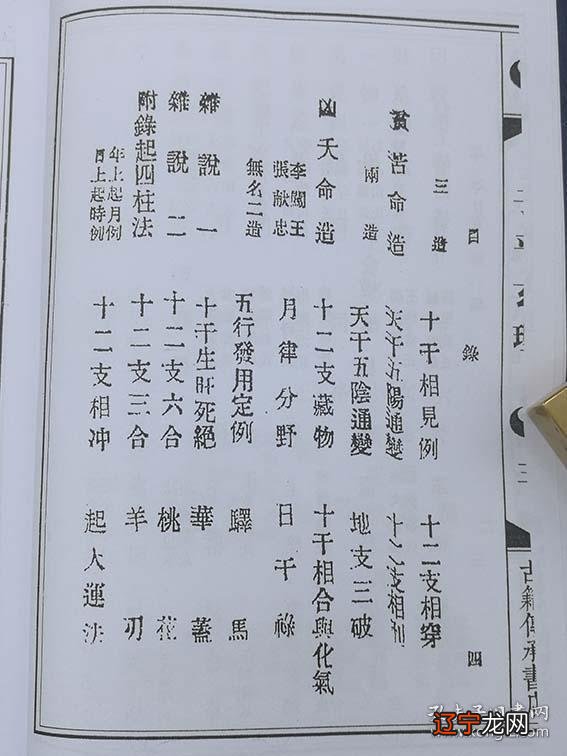 目錄 四
三造
貧苦命造
兩造
凶夭命造
李闖王
張献忠
無名二造
雜說一
雜說二
附錄起四柱法
年上起月例
日上起時例
十干相見例
天干五陽通變
天干五陰通變
十二支藏物
月律分野
五行發用定例
十干生旺死絕
十二支六合
十二支三合
十二支相冲
十二支相穿
十二支相刑
地支三破
十干相合與化氣
日干祿
驛馬
華蓋
桃花
羊刃
起大運法
三
古籍傳承書
辽宁龙网